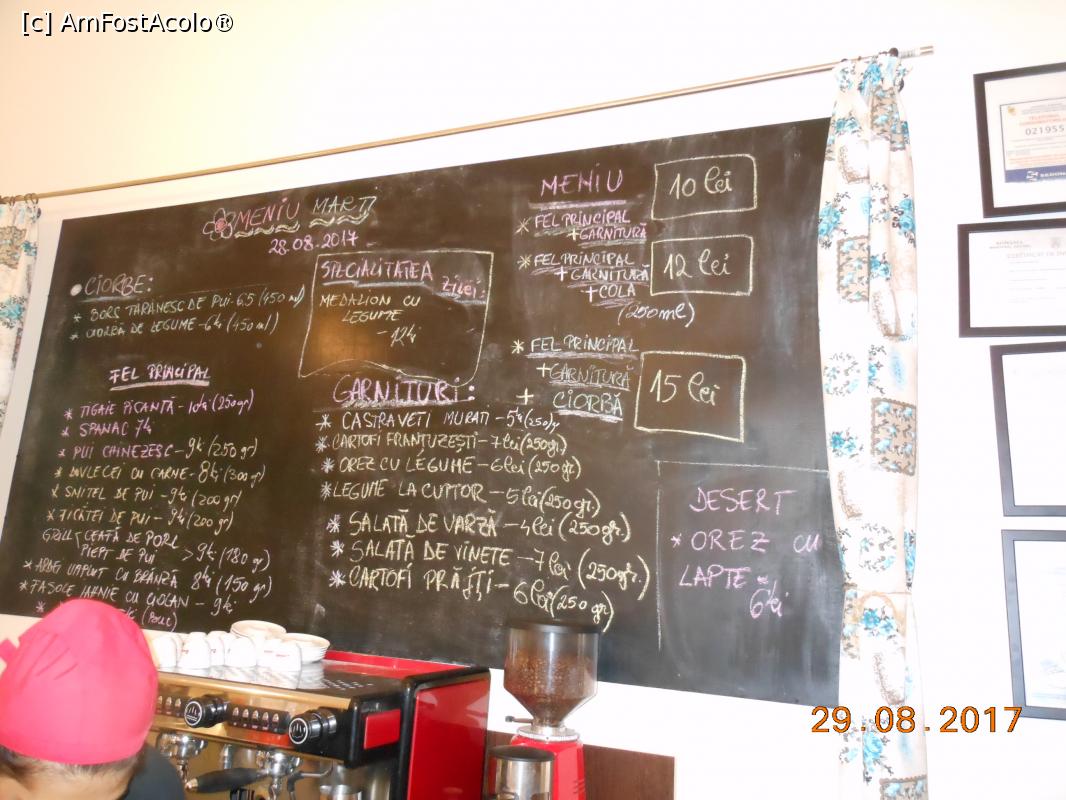 [c] AmFostAcolo®
MENIU MARȚI
28.08.2017
CIORBE:
* BORȘ ȚĂRĂNESC DE PUI - 6.5 (450 ml)
* CIORBĂ DE LEGUME - 6 lei (450 ml)
FEL PRINCIPAL
* TIGAIE PICANTĂ - 10 lei (250 gr)
* SPANAC 7 lei
* PUI CHINEZESC - 9 lei (250 gr)
* DOVLECEI CU CARNE - 8 lei (300 gr)
* ȘNIȚEL DE PUI - 9 lei (200 gr)
* FICĂȚEI DE PUI - 9 lei (200 gr)
GRILL CEAFĂ DE PORC
PIEPT DE PUI > 9 lei (180 gr)
* ARDEI UMPLUT CU BRÂNZĂ 8 lei (150 gr)
* FASOLE IAHNIE CU CIOLAN - 9 lei
SPECIALITATEA ZILEI:
MEDALION CU
LEGUME
- 12 lei
GARNITURI:
* CASTRAVETI MURATI - 5 lei (250) g
* CARTOFI FRANȚUZEȘTI - 7 lei (250 gr.)
* OREZ CU LEGUME - 6 lei (250 gr)
* LEGUME LA CUPTOR - 5 lei (250 gr)
* SALATĂ DE VARZĂ - 4 lei (250 gr)
* SALATĂ DE VINETE - 7 lei (250 gr.)
* CARTOFI PRĂJIȚI - 6 lei (250 gr)
MENIU
* FEL PRINCIPAL
+ GARNITURĂ
10 lei
* FEL PRINCIPAL
+ GARNITURĂ
+ COLA
(250 ml)
12 lei
* FEL PRINCIPAL
+ GARNITURĂ
+ CIORBĂ
15 lei
DESERT
* OREZ CU
LAPTE - 6 lei
021955
29.08.2017